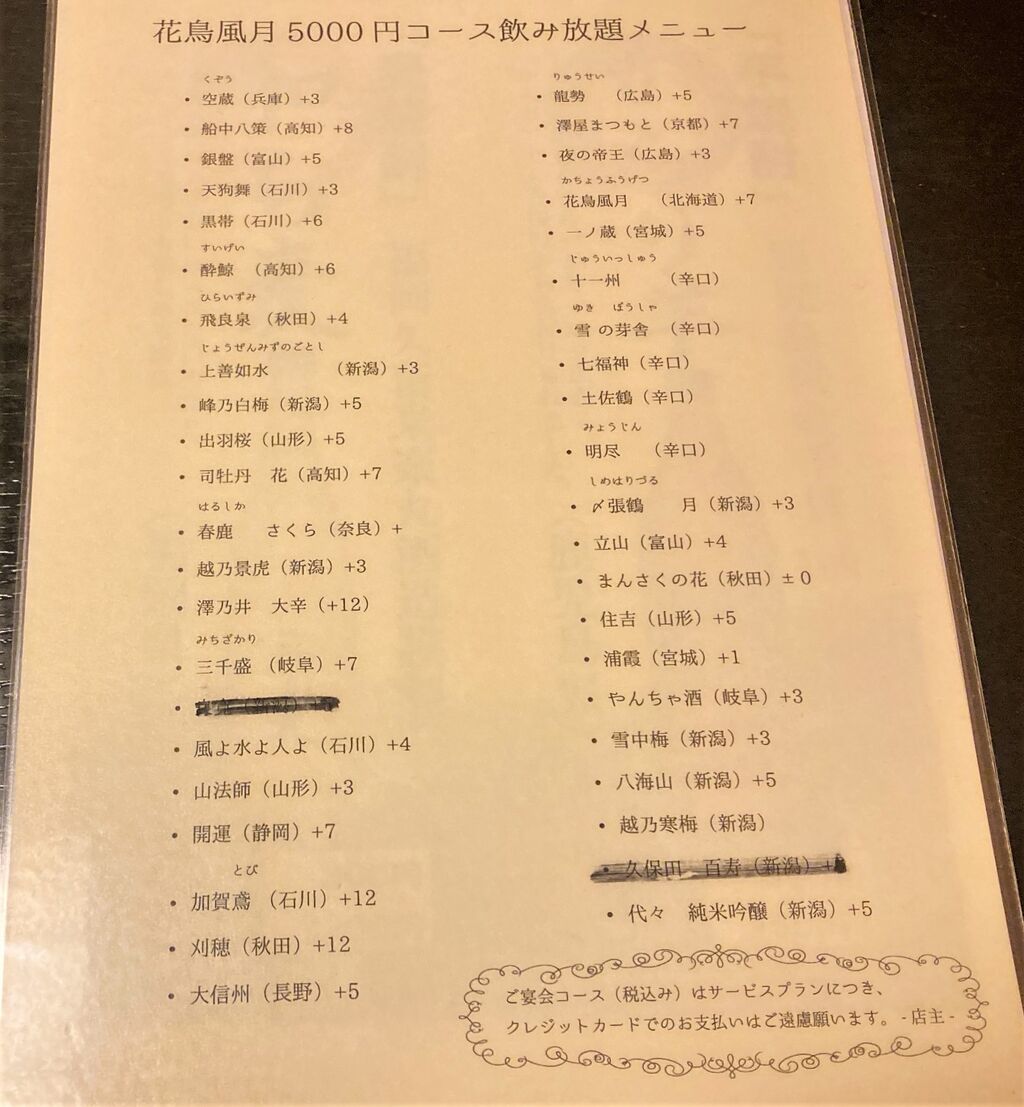 花鳥風月 5000 円コース飲み放題メニュー
くぞう
• 空蔵（兵庫）+3
• 船中八策（高知）+8
• 銀盤（富山）+5
• 天狗舞（石川）+3
• 黒帯（石川）+6
すいげい
• 酔鯨　（高知）+6
ひらいずみ
• 飛良泉　（秋田）+4
じょうぜんみずのごとし
• 上善如水　　　　（新潟）+3
• 峰乃白梅（新潟）+5
• 出羽桜（山形）+5
• 司牡丹　花（高知）+7
はるしか
• 春鹿　　さくら（奈良）+
• 越乃景虎（新潟）+3
• 澤乃井　大辛（+12）
みちざかり
• 三千盛　（岐阜）+7
• 風よ水よ人よ（石川）+4
• 山法師（山形）+3
• 開運（静岡）+7
とび
• 加賀鳶　（石川）+12
• 刈穂（秋田）+12
• 大信州（長野）+5
りゅうせい
• 龍勢　　（広島）+5
• 澤屋まつもと（京都）+7
• 夜の帝王（広島）+3
かちょうふうげつ
• 花鳥風月　　（北海道）+7
• 一ノ蔵（宮城）+5
じゅういっしゅう
• 十一州　　　（辛口）
ゆき　ぼうしゃ
• 雪 の芽舎　（辛口）
• 七福神（辛口）
• 土佐鶴（辛口）
みょうじん
• 明尽　　（辛口）
しめはりづる
• 〆張鶴　　月（新潟）+3
• 立山（富山）+4
• まんさくの花（秋田）± 0
• 住吉（山形）+5
• 浦霞（宮城）+1
• やんちゃ酒（岐阜）+3
• 雪中梅（新潟）+3
• 八海山（新潟）+5
• 越乃寒梅（新潟）
• 久保田　百寿（新潟）+
• 代々　純米吟醸（新潟）+5
ご宴会コース（税込み）はサービスプランにつき、
クレジットカードでのお支払いはご遠慮願います。 - 店主 -